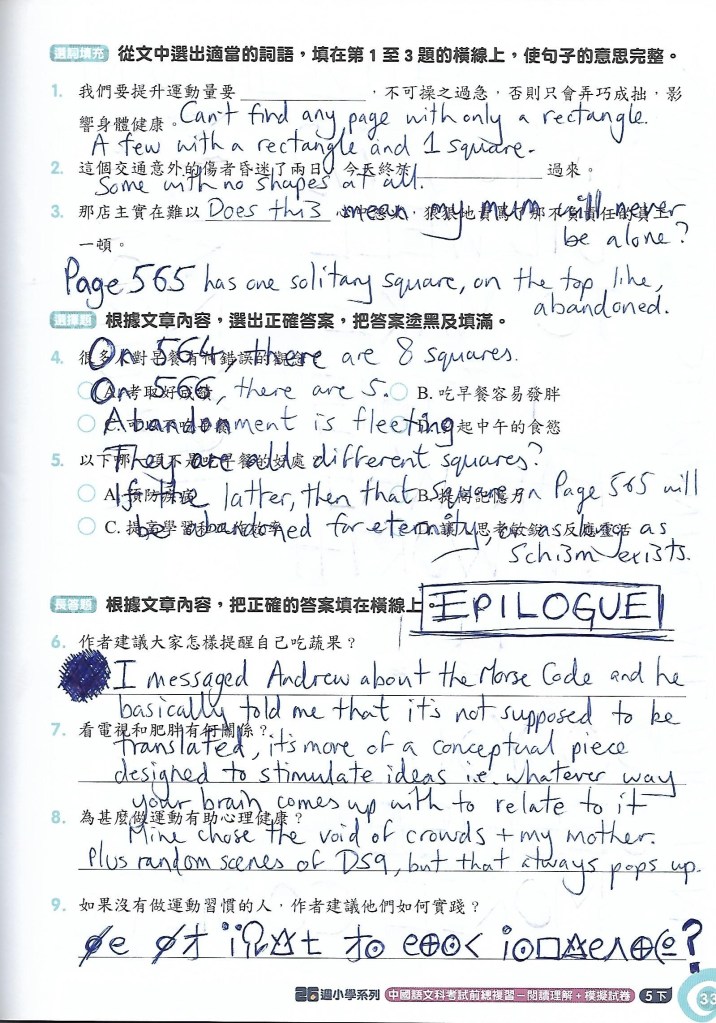 選詞填充 從文中選出適當的詞語，填在第1至3題的橫線上，使句子的意思完整。
1. 我們要提升運動量要＿＿＿＿＿＿，不可操之過急，否則只會弄巧成拙，影
響身體健康。Can't find any page with only a rectangle.
A few with a rectangle and 1 square.
2. 這個交通意外的傷者昏迷了兩日，今天終於＿＿＿＿＿＿過來。
Some with no shapes at all.
3. 那店主實在難以
Does thi3 mean my mum will never
一頓。
be alone?
Page 565 has one solitary square, on the top line,
abandoned.
選擇題 根據文章內容，選出正確答案，把答案塗黑及填滿。
4.
On 564, there are 8 squares.
On 566, there are 5.
B. 吃早餐容易發胖
Abandonment is fleeting
起中午的食慾
5. 以下哪
They are all different squares?
If the latter, then that square on Page 565 will
C. 提高學習
be abandoned for eternity, or as long as
Schi3m exi3ts.
長答題 根據文章內容，把正確的答案填在橫線上。
EPILOGUE
6. 作者建議大家怎樣提醒自己吃蔬果？
I messaged Andrew about the Morse Code and he
basically told me that it's not supposed to be
7. 看電視和肥胖有何關係？
translated, it's more of a conceptual piece
designed to stimulate ideas i.e. whatever way
your brain comes up with to relate to it
8. 為甚麼做運動有助心理健康？
Mine chose the void of crowds + my mother.
Plus random scenes of DS9, but that always pops up.
9. 如果沒有做運動習慣的人，作者建議他們如何實踐？
26週小學系列 中國語文科考試前總複習－閱讀理解＋模擬試卷 5下 33